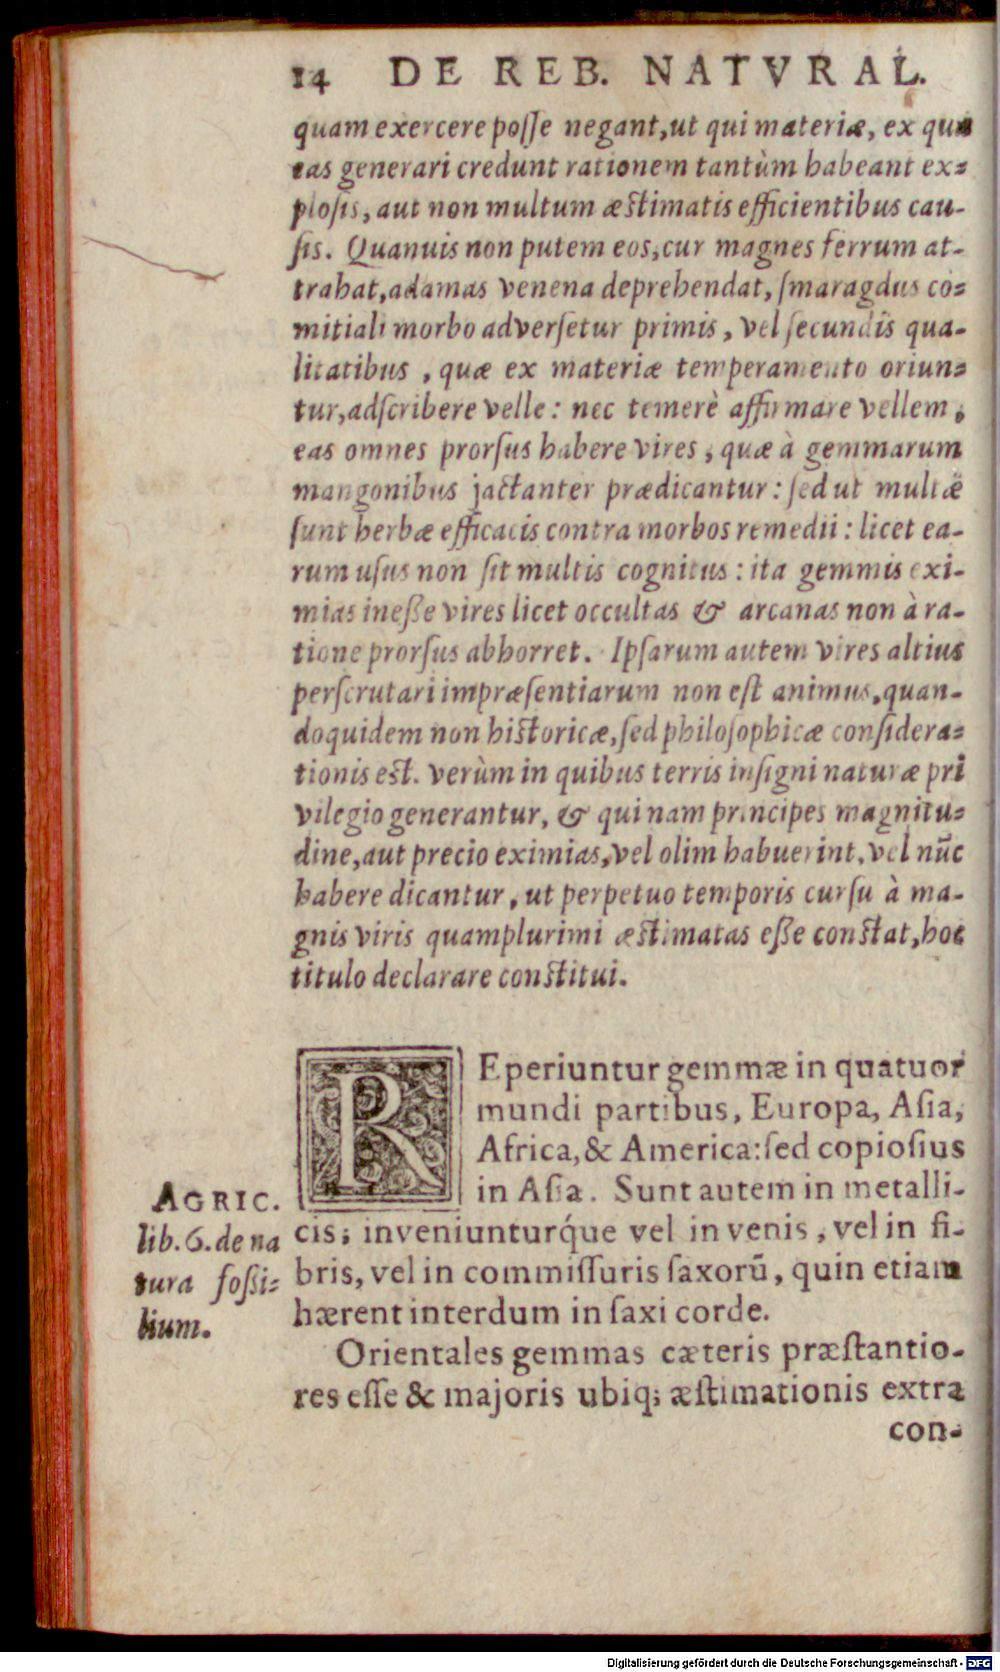 14 DE REB. NATVRAL.
quam exercere posse negant, ut qui materiæ, ex qua
eas generari credunt rationem tantùm habeant ex=
plosis, aut non multum æstimatis efficientibus cau-
sis. Quanuis non putem eos, cur magnes ferrum at-
trahat, adamas venena deprehendat, smaragdus co=
mitiali morbo adversetur primis, vel secundis qua-
litatibus, quæ ex materiæ temperamento oriun=
tur, adscribere velle: nec temerè affirmare vellem,
eas omnes prorsus habere vires, quæ à gemmarum
mangonibus jactanter prædicantur: sed ut multæ
sunt herbæ efficacis contra morbos remedii: licet ea-
rum usus non sit multis cognitus: ita gemmis exi-
mias inesse vires licet occultas & arcanas non à ra-
tione prorsus abhorret. Ipsarum autem vires altius
perscrutari impræsentiarum non est animus, quan-
doquidem non historicæ, sed philosophicæ considera=
tionis est. verùm in quibus terris insigni naturæ pri
vilegio generantur, & qui nam principes magnitu=
dine, aut precio eximias, vel olim habuerint, vel nũc
habere dicantur, ut perpetuo temporis cursu à ma-
gnis viris quamplurimi æstimatas esse constat, hoc
titulo declarare constitui.
REperiuntur gemmæ in quatuor
mundi partibus, Europa, Asia,
Africa, & America: sed copiosius
in Asia. Sunt autem in metalli-
cis; inveniunturq́ue vel in venis, vel in fi-
bris, vel in commissuris saxorũ, quin etiam
hærent interdum in saxi corde.
AGRIC.
lib. 6. de na
tura fossi=
lium.
Orientales gemmas cæteris præstantio-
res esse & majoris ubiq; æstimationis extra
con-
Digitalisierung gefördert durch die Deutsche Forschungsgemeinschaft - DFG